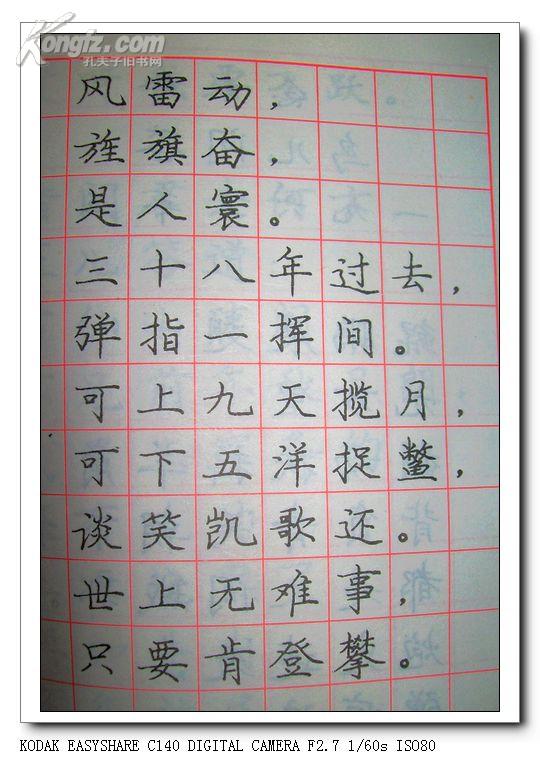 Kongfz.com
孔夫子旧书网
风雷动，
旌旗奋，
是人寰。
三十八年过去，
弹指一挥间。
可上九天揽月，
可下五洋捉鳖，
谈笑凯歌还。
世上无难事，
只要肯登攀。
KODAK EASYSHARE C140 DIGITAL CAMERA F2.7 1/60s ISO80